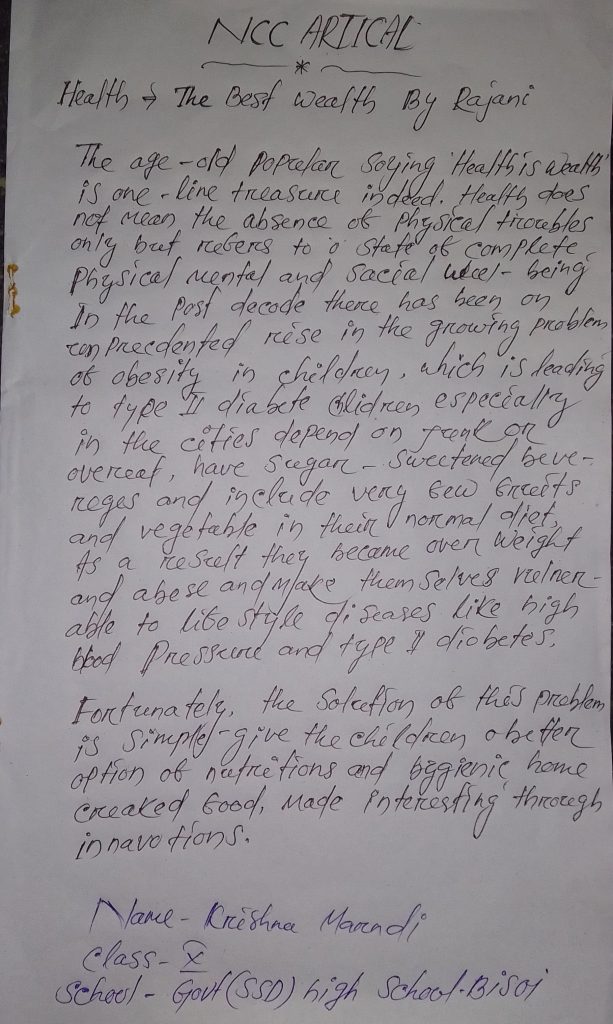 NCC ARTICAL
*
Health → The Best Wealth By Rajani
The age-old popular soying 'Health is wealth
is one-line treasure indeed. Health does
not mean the absence of physical troubles
only but refers to o state of complete
physical mental and sacial weel-being
In the Post decode there has been on
unprecedented rise in the growing problem
of obesity in children, which is leading
to type II diabete children especially
in the cities depend on junk or
overeat, have sugar-sweetened beve-
rages and include very few fruits
and vegetable in their normal diet,
As a result they became over weight
and abese and Make themselves vulner-
able to life style diseases like high
blood Pressure and type II diobetes.
Fortunately, the solution of this problem
is simple-give the children o better
option of nutritions and hygienic home
creaked Good, made interesting through
innavotions.
Name - Krishna Marndi
Class - X
School - Govt (SSD) high School-Bisoi